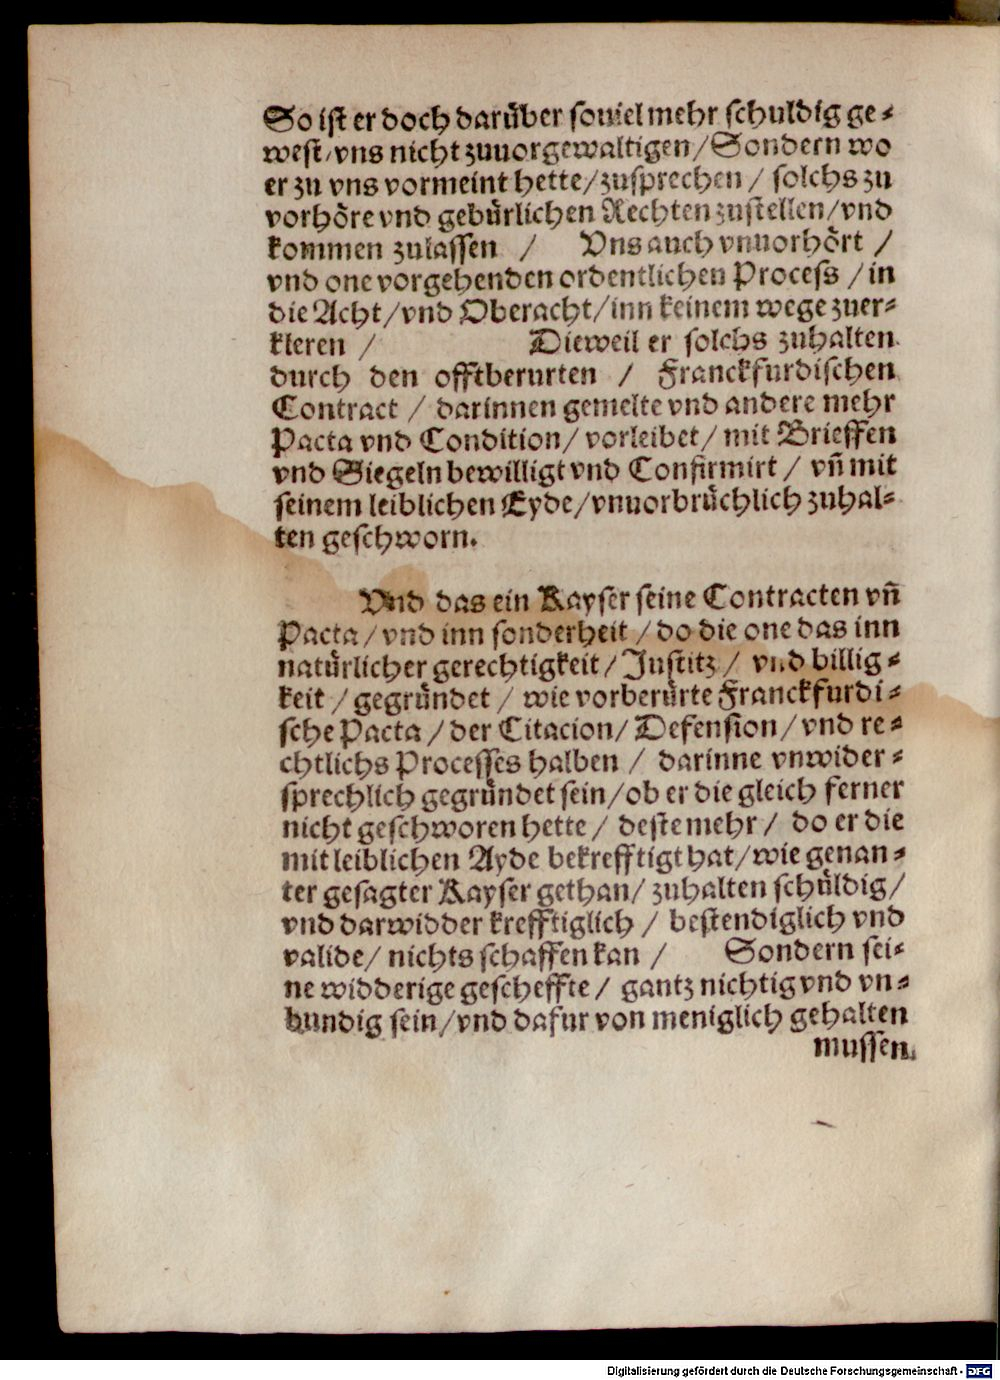 So ist er doch darüber souiel mehr schuldig ge-
west/vns nicht zuuorgewaltigen/Sondern wo
er zu vns vormeint hette/zusprechen / solchs zu
vorhöre vnd gebürlichen Rechten zustellen/vnd
kommen zulassen / Vns auch vnuorhört /
vnd one vorgehenden ordentlichen Process / in
die Acht/vnd Oberacht/inn keinem wege zuer-
kleren / Dieweil er solchs zuhalten
durch den offtberurten / Franckfurdischen
Contract / darinnen gemelte vnd andere mehr
Pacta vnd Condition/vorleibet/mit Brieffen
vnd Siegeln bewilligt vnd Confirmirt / vñ mit
seinem leiblichen Eyde/vnuorbrüchlich zuhal-
ten geschworn.
Vnd das ein Kayser seine Contracten vñ
Pacta/vnd inn sonderheit/do die one das inn
natürlicher gerechtigkeit/Justitz/ vnd billig-
keit/gegründet / wie vorberürte Franckfurdi-
sche Pacta/der Citacion/Defension/vnd re-
chtlichs Processes halben / darinne vnwider-
sprechlich gegründet sein/ob er die gleich ferner
nicht geschworen hette/ deste mehr/ do er die
mit leiblichen Ayde bekrefftigt hat/wie genan-
ter gesagter Kayser gethan/zuhalten schüldig/
vnd darwidder krefftiglich / bestendiglich vnd
valide/ nichts schaffen kan / Sondern sei-
ne widderige gescheffte/ gantz nichtig vnd vn-
bundig sein/vnd dafur von meniglich gehalten
mussen.
Digitalisierung gefördert durch die Deutsche Forschungsgemeinschaft - DFG